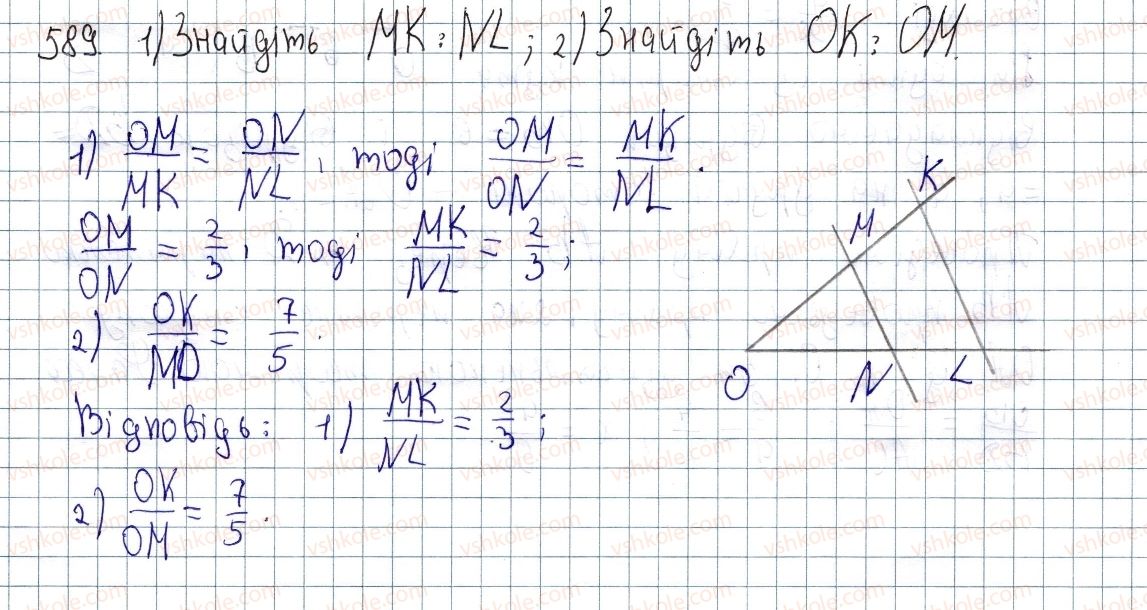 589. 1) Знайдіть MK : NL ; 2) Знайдіть OK : OM.
1) OM/MK = ON/NL, тоді OM/ON = MK/NL.
OM/ON = 2/3, тоді MK/NL = 2/3;
2) OK/MO = 7/5.
Відповідь: 1) MK/NL = 2/3;
2) OK/OM = 7/5.
K
M
O N L
vshkole.com